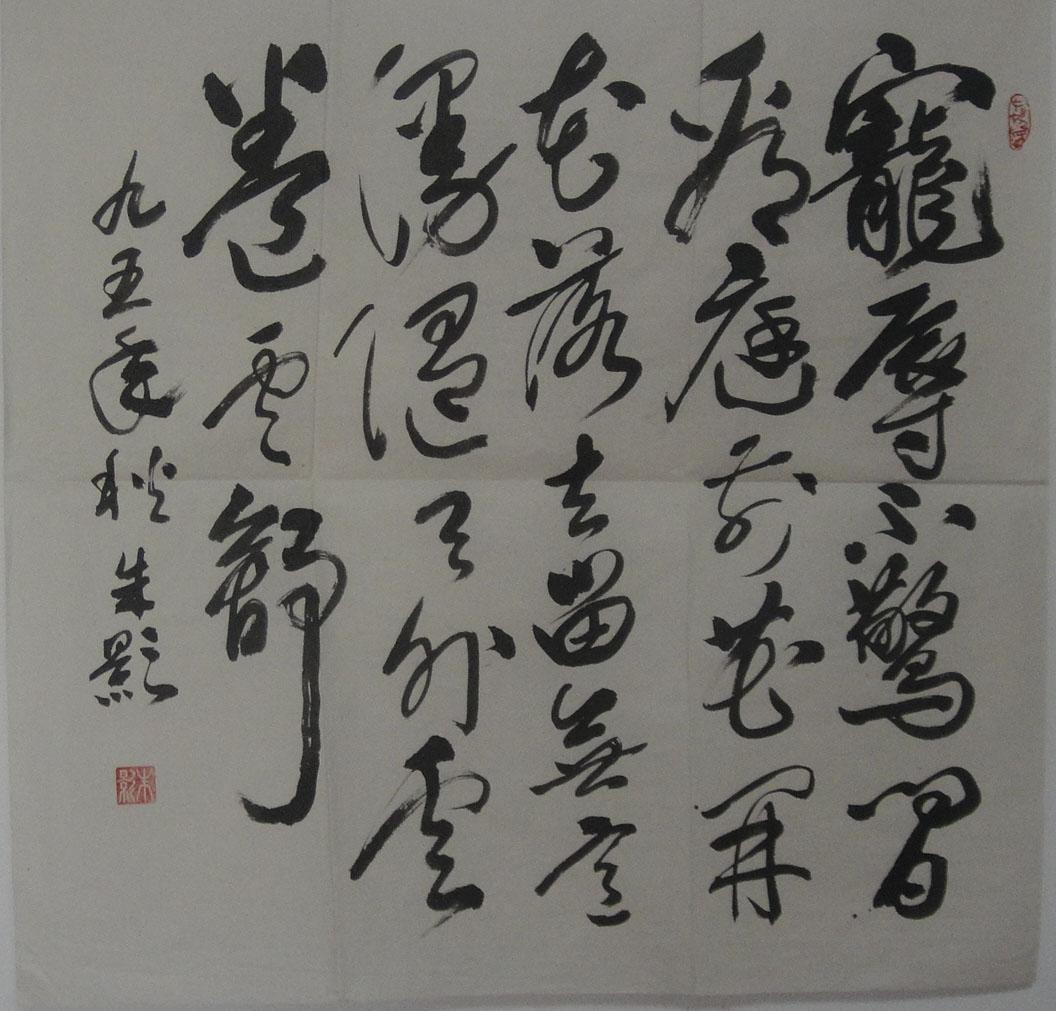 寵辱不驚間
看庭前花開
花落去留無意
漫隨天外雲
卷雲舒
九五年秋朱影
朱影